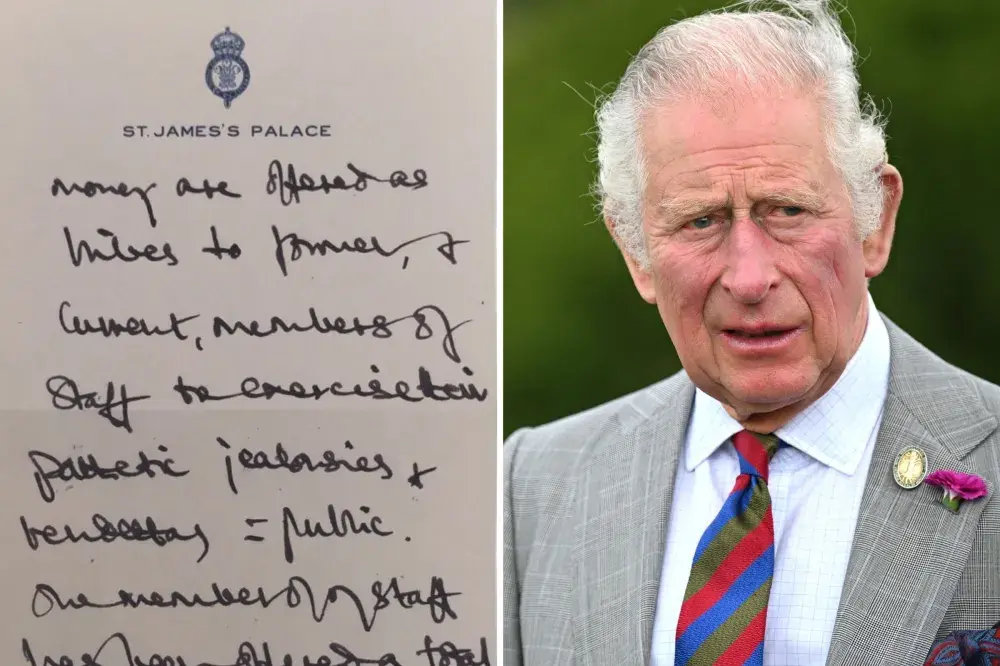 ST. JAMES'S PALACE
money are offered as
bribes to former, +
current, members of
staff to exercise their
pathetic jealousies +
vendettas = public.
One member of my staff
has been offered a total